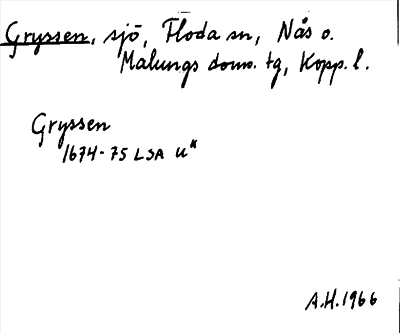 Gryssen, sjö, Floda sn, Nås o.
Malungs doms. tg, Kopp. l.
Gryssen
1674-75 LSA U"
A.H. 1966